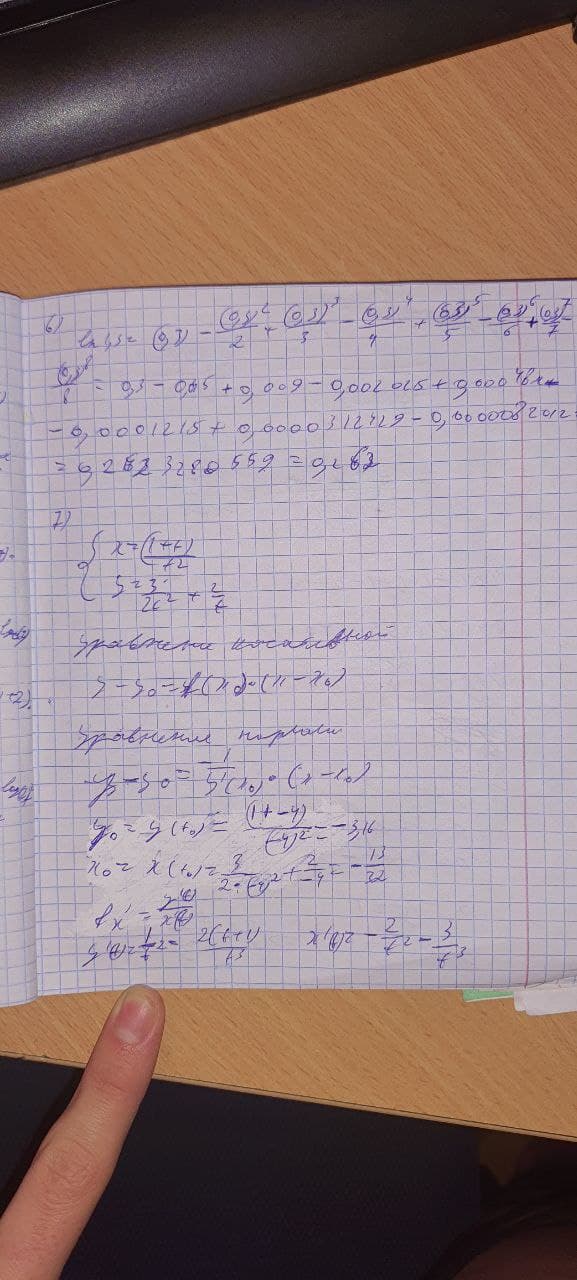 6) ln 1,3 = (0,3) - (0,3)²/2 + (0,3)³/3 - (0,3)⁴/4 + (0,3)⁵/5 - (0,3)⁶/6 + (0,3)⁷/7
(0,3)⁸/8 = 0,3 - 0,045 + 0,009 - 0,002025 +
- 0,0001215 + 0,0000312429 -
= 0,2623280559 = 0,262
7)
{ x = (1+t)/t²
y = 3/2t² + 2/t
Уравнение касательной
y - y₀ = (x₀)·(x - x₀)
Уравнение нормали
y - y₀ = -1/y'(x₀) · (x - x₀)
y₀ = y(t₀) = (1+-4)/(-4)² = -3/16
x₀ = x(t₀) = 3/2·(-4)² + 2/-4 = -13/32
y'(t) = 1/t² - 2(t+1)/t³ x'(t) = -2/t² - 3/t³